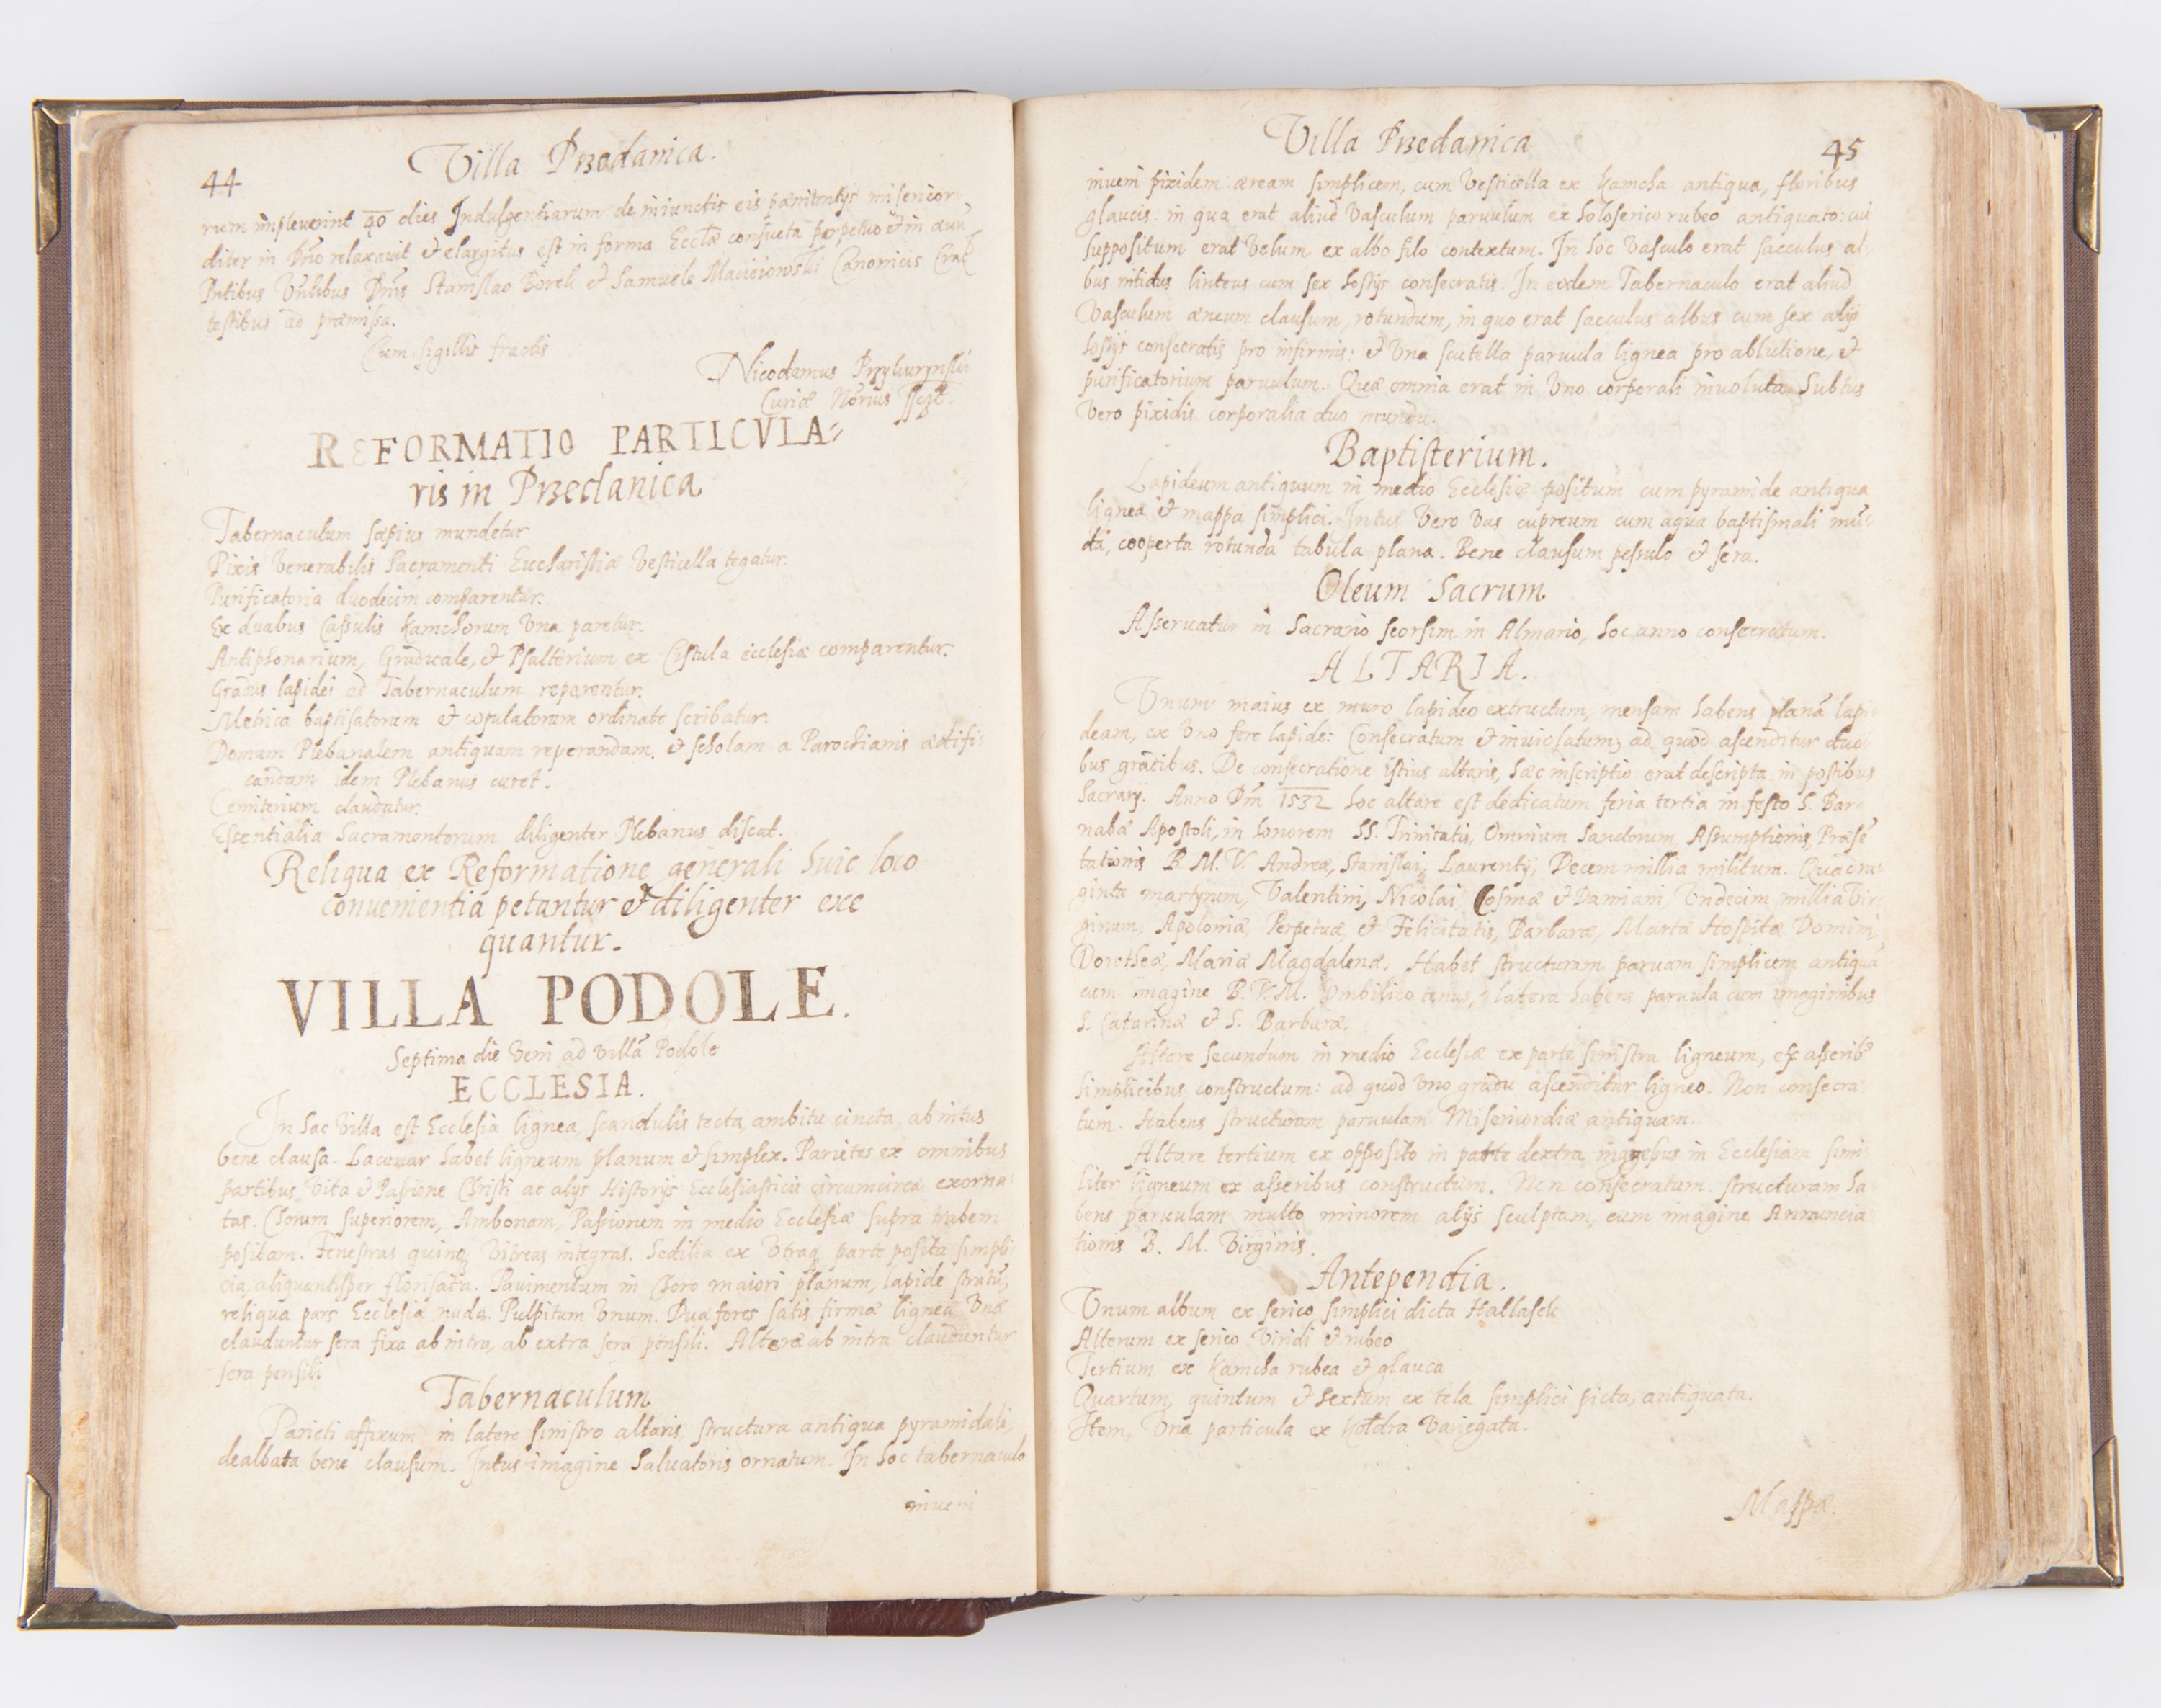 44
Villa Przedanica.
rum impleverint 40 dies Indulgentiarum de iniunctis eis pænitentijs misericor-
diter in Dno relaxavit et elargitus est in forma Ecclæ consueta perpetuo et in ævu
Pntibus Vnlibus Dnis Stanislao Borek et Samuele Macieiowski Canonicis Crac
testibus ad præmissa.
Cum sigillis fractis
Nicodemus
Curiæ Norius sspt.
REFORMATIO PARTICVLA=
ris in Przedanica
Tabernaculum sæpius mundetur
Pixis Venerabilis Sacramenti Eucharistiæ Vesticella tegatur.
Purificatoria duodecim comparentur.
Ex duabus Cassulis Kamchorum Una paretur.
Antiphonarium, Graduale, et Psalterium ex Cistula ecclesiæ comparentur.
Gradus lapidei ad Tabernaculum reparentur.
Metrica baptisatorum et copulatorum ordinate scribatur.
Domum Plebanalem antiquam reperandam, et scholam a Parochianis ædifi-
candam idem Plebanus curet.
Cemiterium claudatur.
Essentialia Sacramentorum diligenter Plebanus discat.
Reliqua ex Reformatione generali huic loco
convenientia petantur et diligenter exe
quantur.
VILLA PODOLE.
Septima die Veni ad villā Podole
ECCLESIA.
In hac Villa est Ecclesia lignea, scandulis tecta, ambitu cincta, ab intus
bene clausa. Lacunar habet ligneum planum et simplex. Parietes ex omnibus
partibus Vita et Passione Christi ac alijs Historijs Ecclesiasticis circumcirca exorna-
tas. Chorum superiorem, Ambonam, Passionem in medio Ecclesiæ supra trabem
positam. Fenestras quinq Vitreas integras. Sedilia ex Utraq parte posita simpli-
cia, aliquantisper florisata. Pavimentum in Choro maiori planum, lapide stratū,
reliqua pars Ecclesiæ nuda. Pulpitum Unum. Duæ fores satis firmæ ligneæ, Unæ
clauduntur sera fixa ab intra, ab extra sera pensili. Alteræ ab intra clauduntur
sera pensili
Tabernaculum
Parieti affixum in latere sinistro altaris, structura antiqua pyramidali,
dealbata bene clausum. Intus imagine Salvatoris ornatum. In hoc tabernaculo
inveni
Villa Przedanica
45
inveni pixidem æream simplicem, cum Vesticella ex Kamcha antiqua, floribus
glaucis: in qua erat aliud Vasculum parvulum ex holoserico rubeo antiquato: cui
suppositum erat Velum ex albo filo contextum. In hoc Vasculo erat sacculus al-
bus nitidus linteus cum sex hostijs consecratis. In eodem Tabernaculo erat aliud
Vasculum æneum clausum, rotundum, in quo erat sacculus albus cum sex alijs
hostijs consecratis pro infirmis: et Una scutella parvula lignea pro ablutione, et
purificatorium parvulum. Quæ omnia erat in Uno corporali involuta. Subtus
Vero pixidis corporalia duo munda.
Baptisterium.
Lapideum antiquum in medio Ecclesiæ positum cum pyramide antiqua
lignea et mappa simplici. Intus Vero Vas cupreum cum aqua baptismali mū-
da, cooperta rotunda tabula plana. Bene clausum pessulo et sera.
Oleum Sacrum
Asservatur in Sacrario seorsim in Almario, hoc anno consecratum.
ALTARIA.
Unum maius ex muro lapideo extructum, mensam habens planā lapi-
deam, ex Uno fere lapide: Consecratum et inviolatum; ad quod ascenditur duo-
bus gradibus. De consecratione istius altaris, hæc inscriptio erat descripta in postibus
Sacrarij. Anno Dm 1532 hoc altare est dedicatum feria tertia in festo S. Bar-
nabæ Apostoli, in honorem SS. Trinitatis, Omnium Sanctorum Assumptionis, Præsē
tationis B. M. V. Andreæ, Stanislai, Laurentij, Decem millia militum. Quadra-
ginta martyrum, Valentini, Nicolai, Cosmæ et Damiani, Undecim millia Vir-
ginum, Apoloniæ, Perpetuæ, et Felicitatis, Barbaræ, Martæ Hospitæ Domini,
Dorotheæ, Mariæ Magdalenæ. Habet structuram parvam simplicem antiquā
cum imagine B. V. M. Umbilico tenus, latera habens parvula cum imaginibus
S. Catarinæ et S. Barbaræ.
Altare secundum in medio Ecclesiæ ex parte sinistra ligneum, ex asserib9
simplicibus constructum: ad quod Uno gradu ascenditur ligneo. Non consecra-
tum. Habens structuram parvulam Misericordiæ antiquam.
Altare tertium ex opposito in parte dextra ingressus in Ecclesiam simi-
liter ligneum ex asseribus constructum. Non consecratum. structuram ha-
bens parvulam multo minorem alijs sculptam, cum imagine Annuncia-
tionis B. M. Virginis.
Antependia.
Unum album ex serico simplici dicta Hattasek
Alterum ex serico Viridi et rubeo
Tertium ex Kamcha rubea et glauca
Quartum, quintum et sextum ex tela simplici picta, antiquata.
Item, Una particula ex Koldra Variegata.
Mappæ.